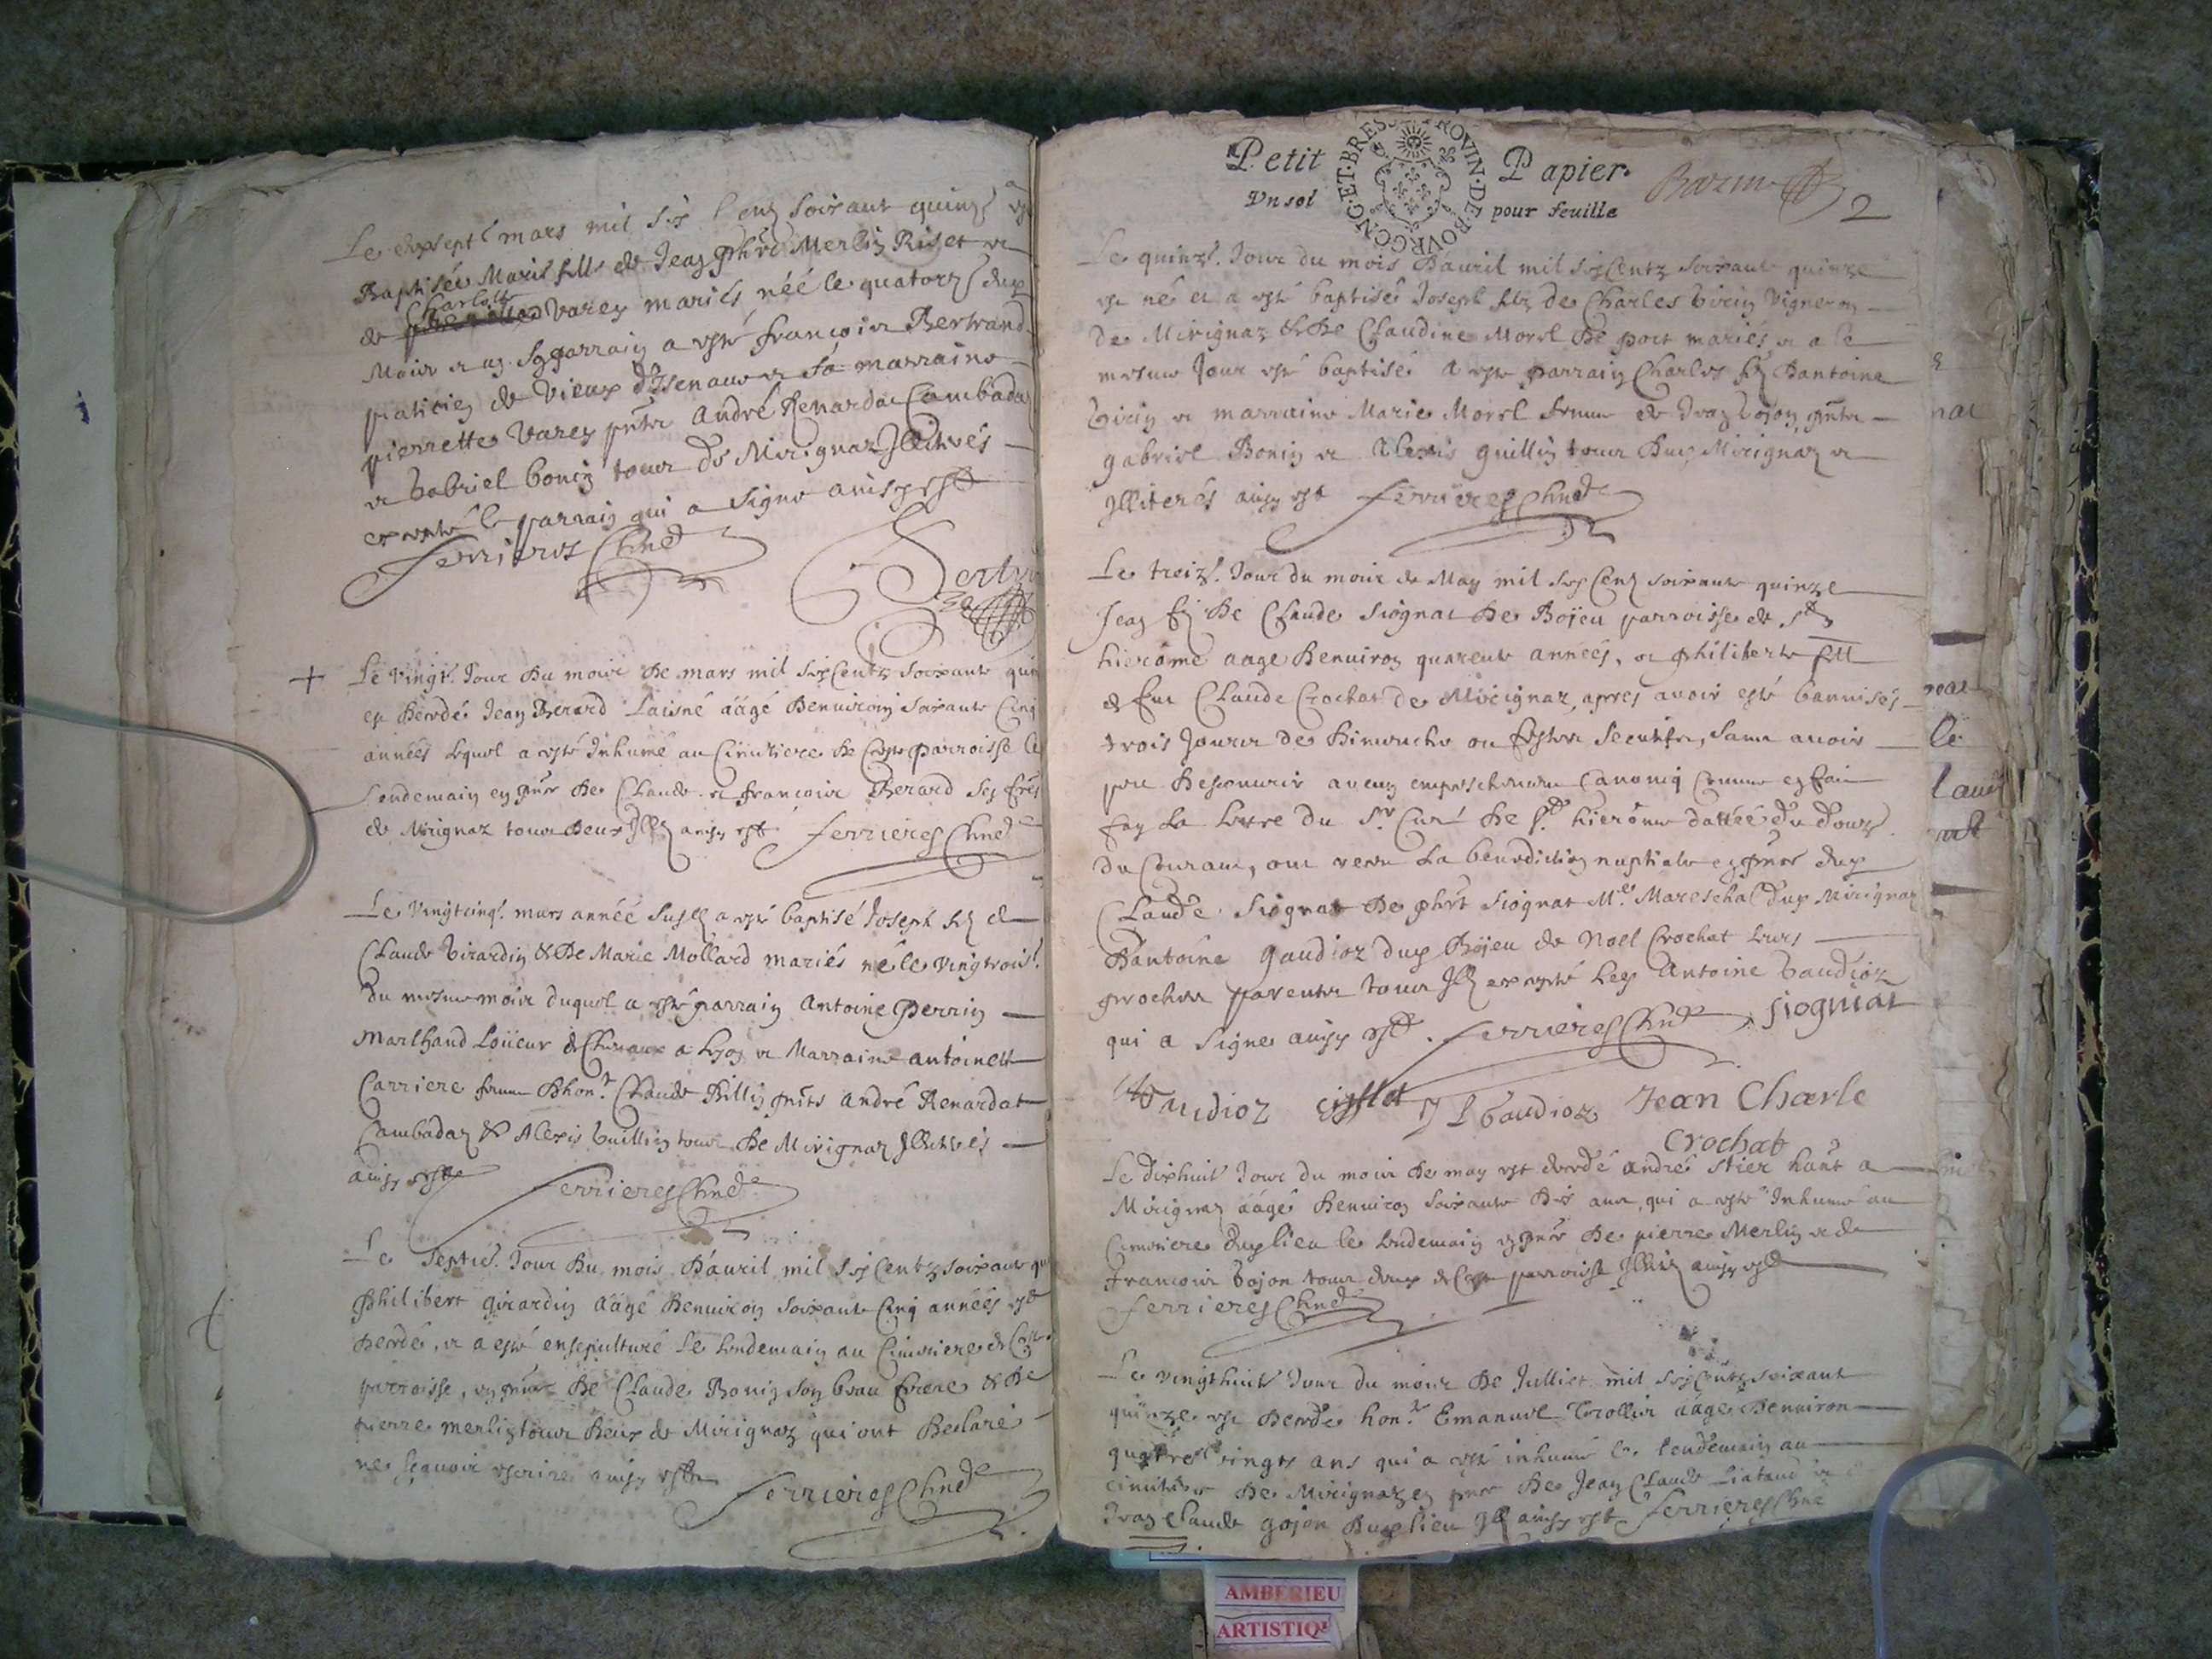 Le dixsept.e mars mil six Centz soixante quinze
Baptisée Marie fille de Jean phr't Merlin Riset et
de Charlotte Varey mariés, née le quatorz.e dud
Mois et an. Son parrain a esté françois Bertrand
praticien de Vieux d'Isenave et sa marraine
pierrette Varey pnts André Renardat Cambada
et Gabriel bonin tous de Mirignaz Illiterés
excepté le parrain qui a signé ainsy est
ferrieres Chne
+ Le Vingt.e Jour du mois de mars mil six Centz soixante quin
est decedé Jean Berard Laisné aagé denuiron soixante Cinq
années lequel a esté Inhumé au Cimitiere de Cette parroisse le
Lendemain en pnce de Claude et francois Berard ses freres
de Mirignaz tous deux Illz ainsy est ferrieres Chne
Le Vingtcinq.e mars année susd a esté baptisé Joseph filz de
Claude Girardin & de Marie Mollard mariés né le vingtrois.e
du mesme mois duquel a esté parrain Antoine Perrin
Marchand Loüeur de Chevaux a Lyon et Marraine antoinette
Carriere femme d'hon.e Claude Billin pnts André Renardat
Cambadaz & Alexis Guillin tous de Mirignaz Illiterés
ainsy est
ferrieres Chne
Le septie.e Jour du mois d'auril mil six Centz soixante qu
Philibert girardin aagé denuiron soixante Cinq années est
decedé, et a esté ensepulturé le lendemain au Cimitiere de Cette
parroisse, en pnce de Claude Bonin son beau frere & de
pierre merlin tous deux de Mirignaz qui ont declaré
ne sçauoir escrire ainsy est
ferrieres Chne
Petit Papier.
GÉT.BRESS PROVIN.DE.BOVRGONG
Vn sol pour feuille
2
Le quinz.e Jour du mois d'auril mil six Centz soixante quinze
est né et a esté baptisé Joseph filz de Charles Girin Vigneron
de Mirignaz & de Claudine Morel de port mariés et a le
mesme Jour esté baptisé a esté parrain Charles filz d'antoine
Girin et marraine Marie Morel femme de Jean Gojon pnts
gabriel Bonin et Alexis guillin tous dud Mirignaz et
Illiterés ainsy est ferrieres Chne
Le treiz.e Jour du mois de May mil six Cens soixante quinze
Jean filz de Claude Siognat de Boÿeu parroisse de St
hierôme aagé denuiron quarente années, et philiberte fille
de feu Claude Crochat de Mirignaz, apres avoir esté bannisés
trois Jours de dimenche ou festes secutifs, sans avoir
peu descouurir aucun empeschement Canoniq Comme en fait
foy La Lettre du Sr Curé de St hierôme dattée du douz.e
du Courant, ont receu La benediction nuptiale en pnce dud
Claude Siognat de phr't Siognat Me Mareschal dud Mirignaz
d'antoine gaudioz dud Boÿeu de Noel Crochat leurs
proches parents tous Illz excepté led Antoine Gaudioz
qui a signé ainsy est. ferrieres Chne siogniat
Gaudioz I Gaudioz Jean Charle
Crochat
Le dixhuit.e Jour du mois de may est decedé andré Stier hant a
Mirignaz aagé denuiron soixante dix ans, qui a esté Inhumé au
Cimitiere dud lieu le lendemain en pnce de pierre Merlin et de
françois Gojon tous deux de Cette parroisse Illitz ainsy est
ferrieres Chne
Le vingthuit.e Jour du mois de Julliet mil six Centz soixante
quinze est decedé hon.e Emanuel Trollier aagé denuiron
quatre vingts ans qui a esté inhumé le lendemain au
cimitiere de Mirignaz en pnce de Jean Claude Liataud et
Jean Claude gojon dud lieu Illz ainsy est ferrieres Chne
AMBERIEU
ARTISTIQ